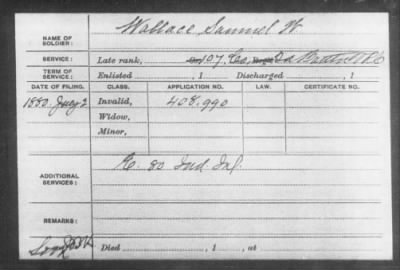 NAME OF SOLDIER: Wallace Samuel W.
SERVICE: Late rank, 107, Co, 2d Battn V R C
TERM OF SERVICE: Enlisted , 1 Discharged , 1
DATE OF FILING. CLASS. APPLICATION NO. LAW. CERTIFICATE NO.
1880 July 2 Invalid, 408.990
Widow,
Minor,
ADDITIONAL SERVICES: K. 80 Ind. Inf.
REMARKS:
Died , 1 , at